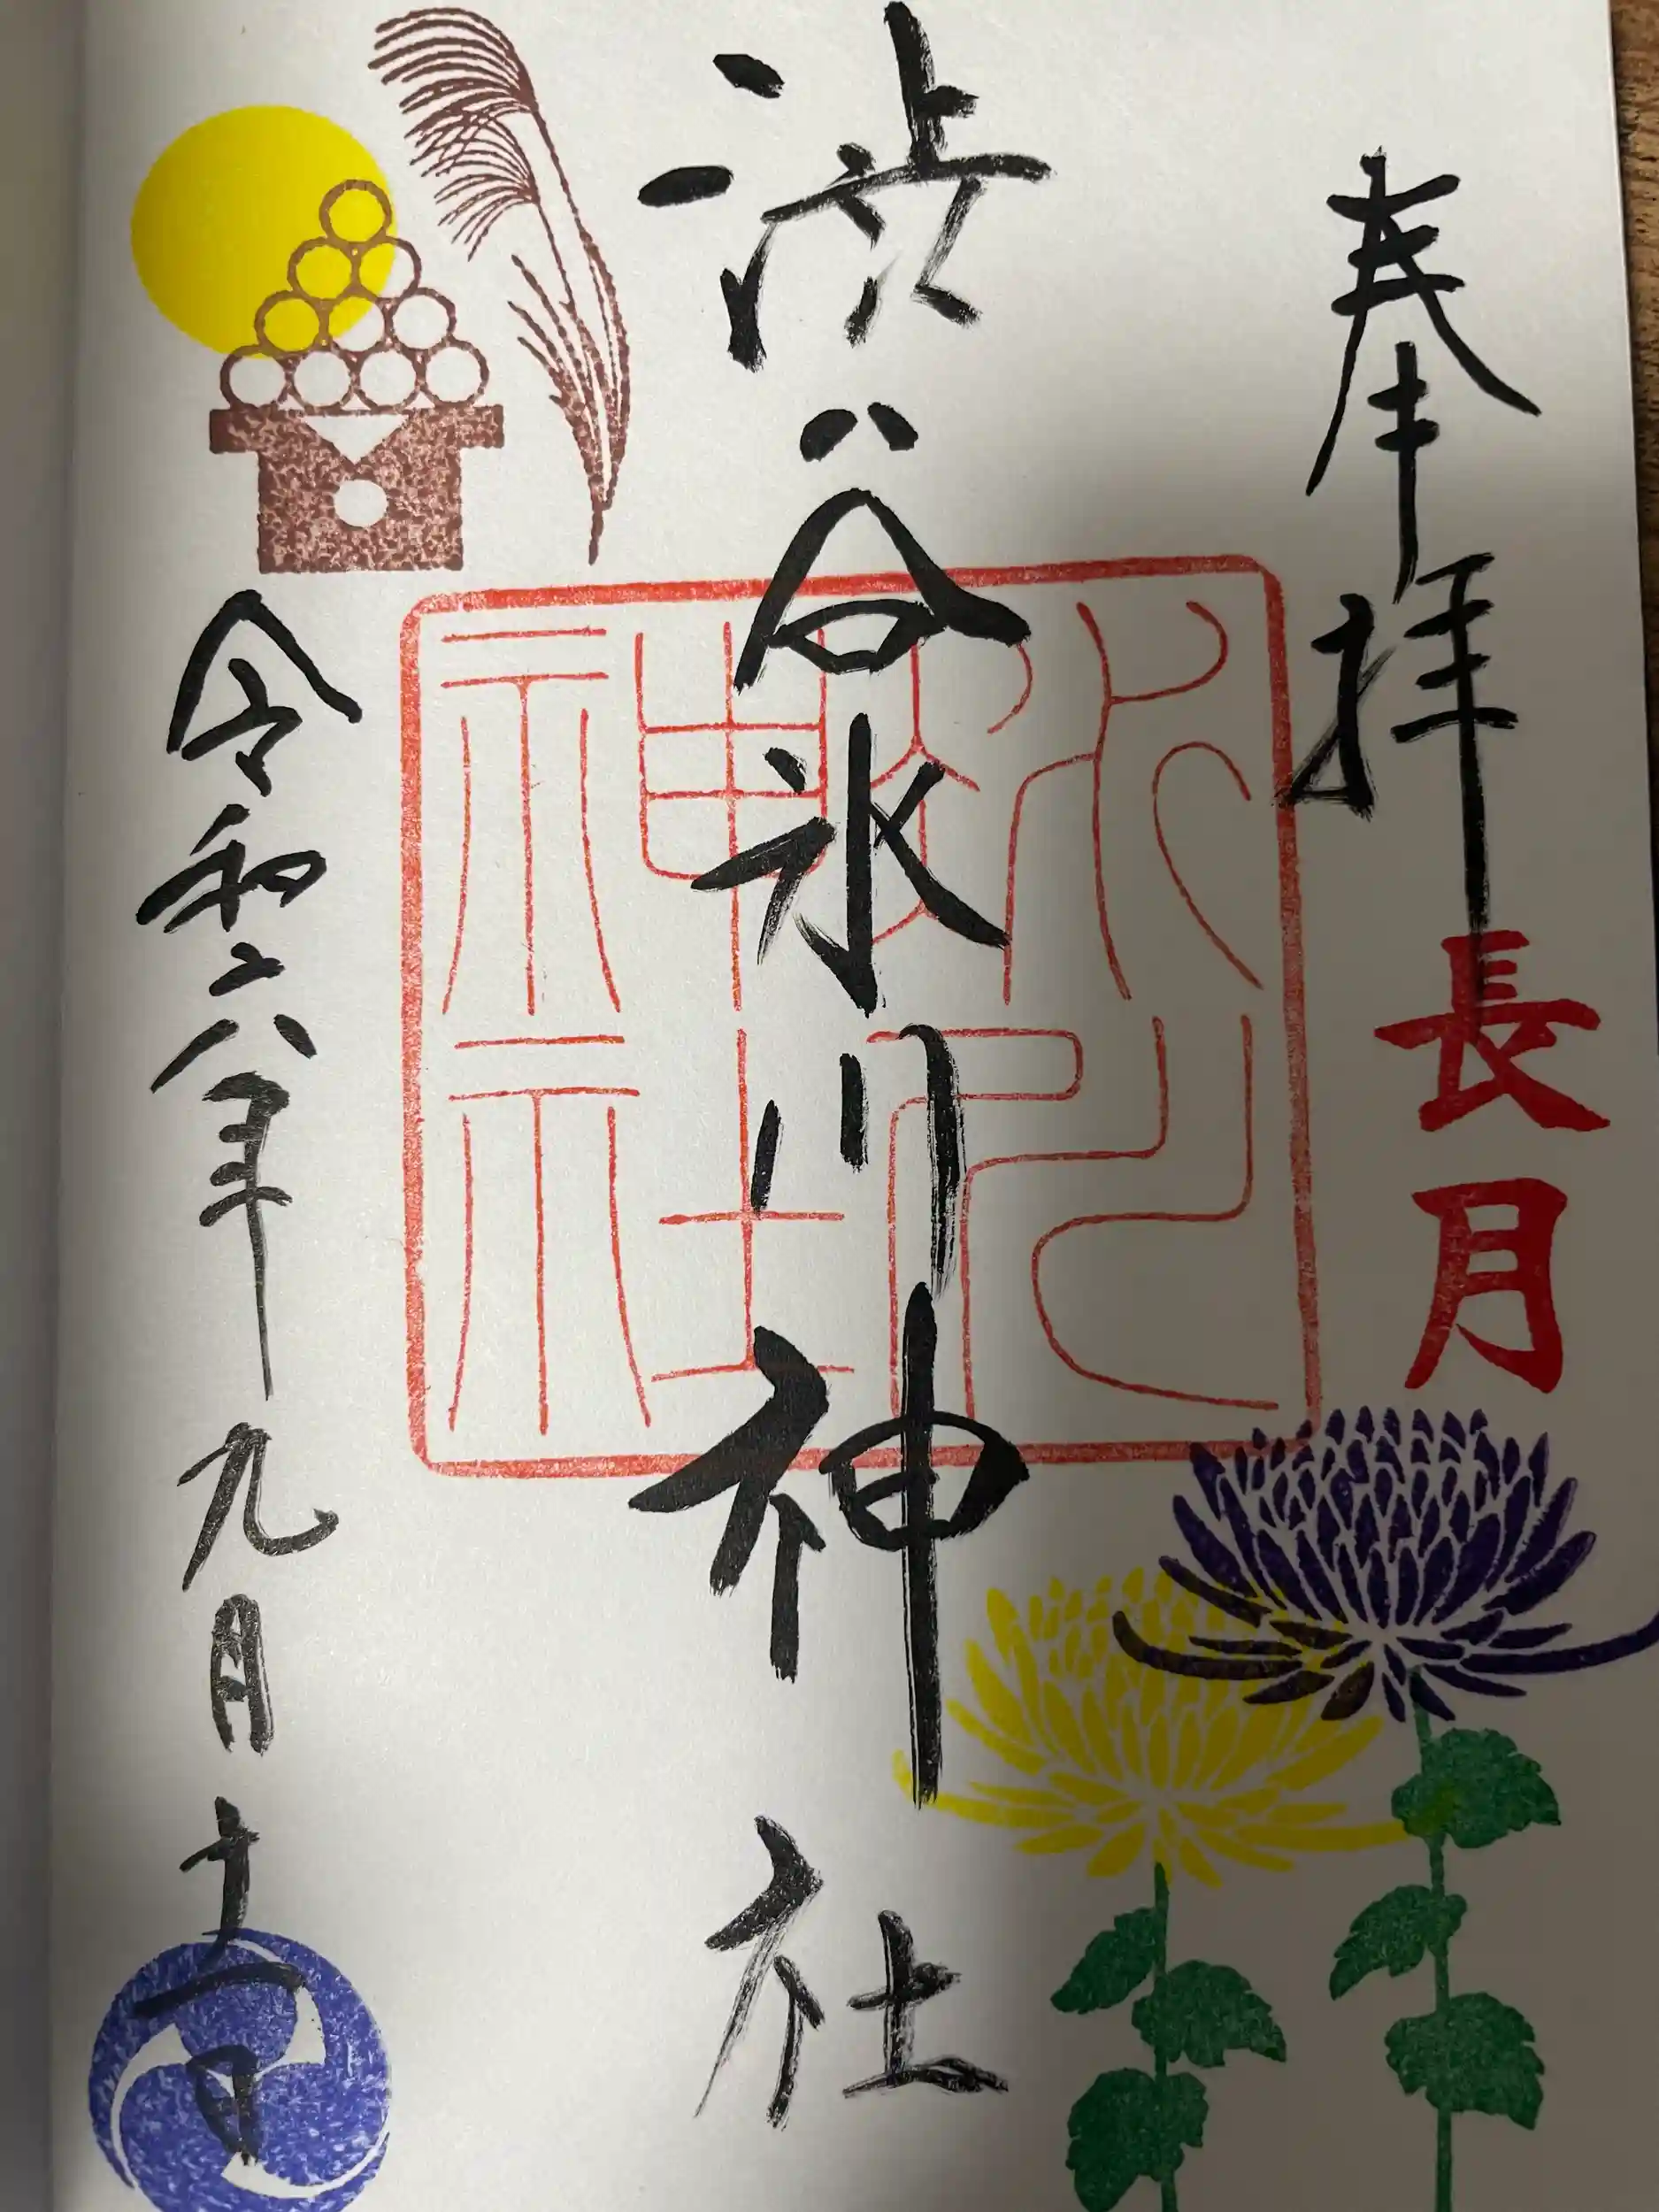 奉拝
長月
渋谷氷川神社
氷川神社
令和六年九月十一日